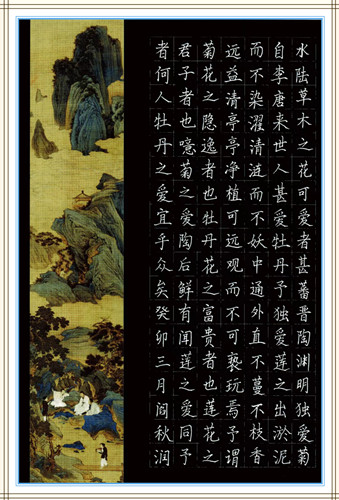 水陆草木之花可爱者甚蕃晋陶渊明独爱菊
自李唐来世人甚爱牡丹予独爱莲之出淤泥
而不染濯清涟而不妖中通外直不蔓不枝香
远益清亭亭净植可远观而不可亵玩焉予谓
菊花之隐逸者也牡丹花之富贵者也莲花之
君子者也噫菊之爱陶后鲜有闻莲之爱同予
者何人牡丹之爱宜乎众矣癸卯三月阎秋润